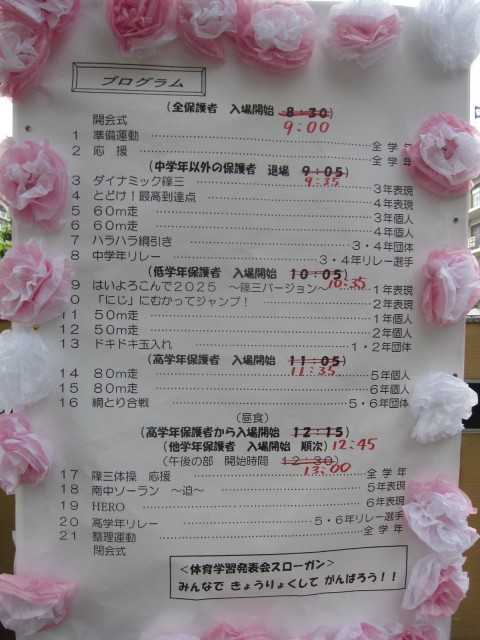 プログラム
(全保護者 入場開始 8:30)
9:00
開会式
1 準備運動 全学年
2 応援 全学年
(中学年以外の保護者 退場 9:05)
9:35
3 ダイナミック篠三 3年表現
4 とどけ!最高到達点 4年表現
5 60m走 3年個人
6 60m走 4年個人
7 ハラハラ綱引き 3・4年団体
8 中学年リレー 3・4年リレー選手
(低学年保護者 入場開始 10:05)
10:35
9 はいよろこんで2025 ~篠三バージョン~ 1年表現
0 「にじ」にむかってジャンプ! 2年表現
11 50m走 1年個人
12 50m走 2年個人
13 ドキドキ玉入れ 1・2年団体
(高学年保護者 入場開始 11:05)
11:35
14 80m走 5年個人
15 80m走 6年個人
16 綱とり合戦 5・6年団体
(昼食)
(高学年保護者から入場開始 12:15)
(他学年保護者 入場開始 順次) 12:45
(午後の部 開始時間 12:30)
13:00
17 篠三体操 応援 全学年
18 南中ソーラン ~迫~ 5年表現
19 HERO 6年表現
20 高学年リレー 5・6年リレー選手
21 整理運動 全学年
閉会式
<体育学習発表会スローガン>
みんなで きょうりょくして がんばろう!!